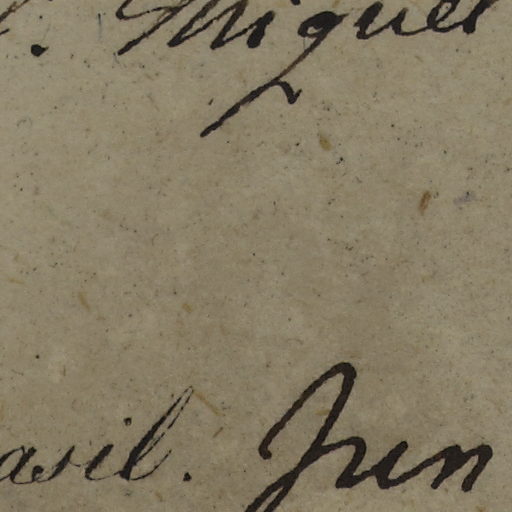 . Miguel
asil. Jun